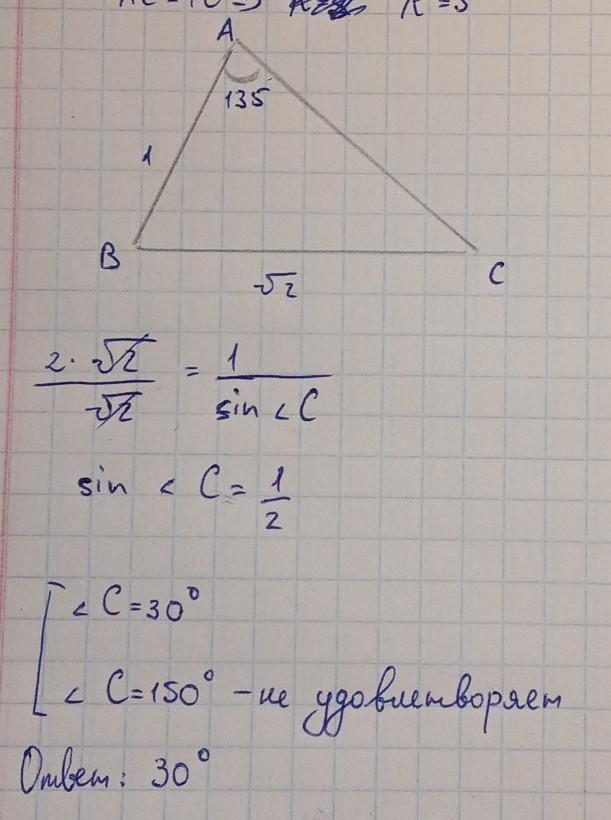 R = 5
A
135
1
B
C
√2
2·√2/√2 = 1/sin < C
sin < C = 1/2
< C = 30°
< C = 150° – не удовлетворяет
Ответ: 30°